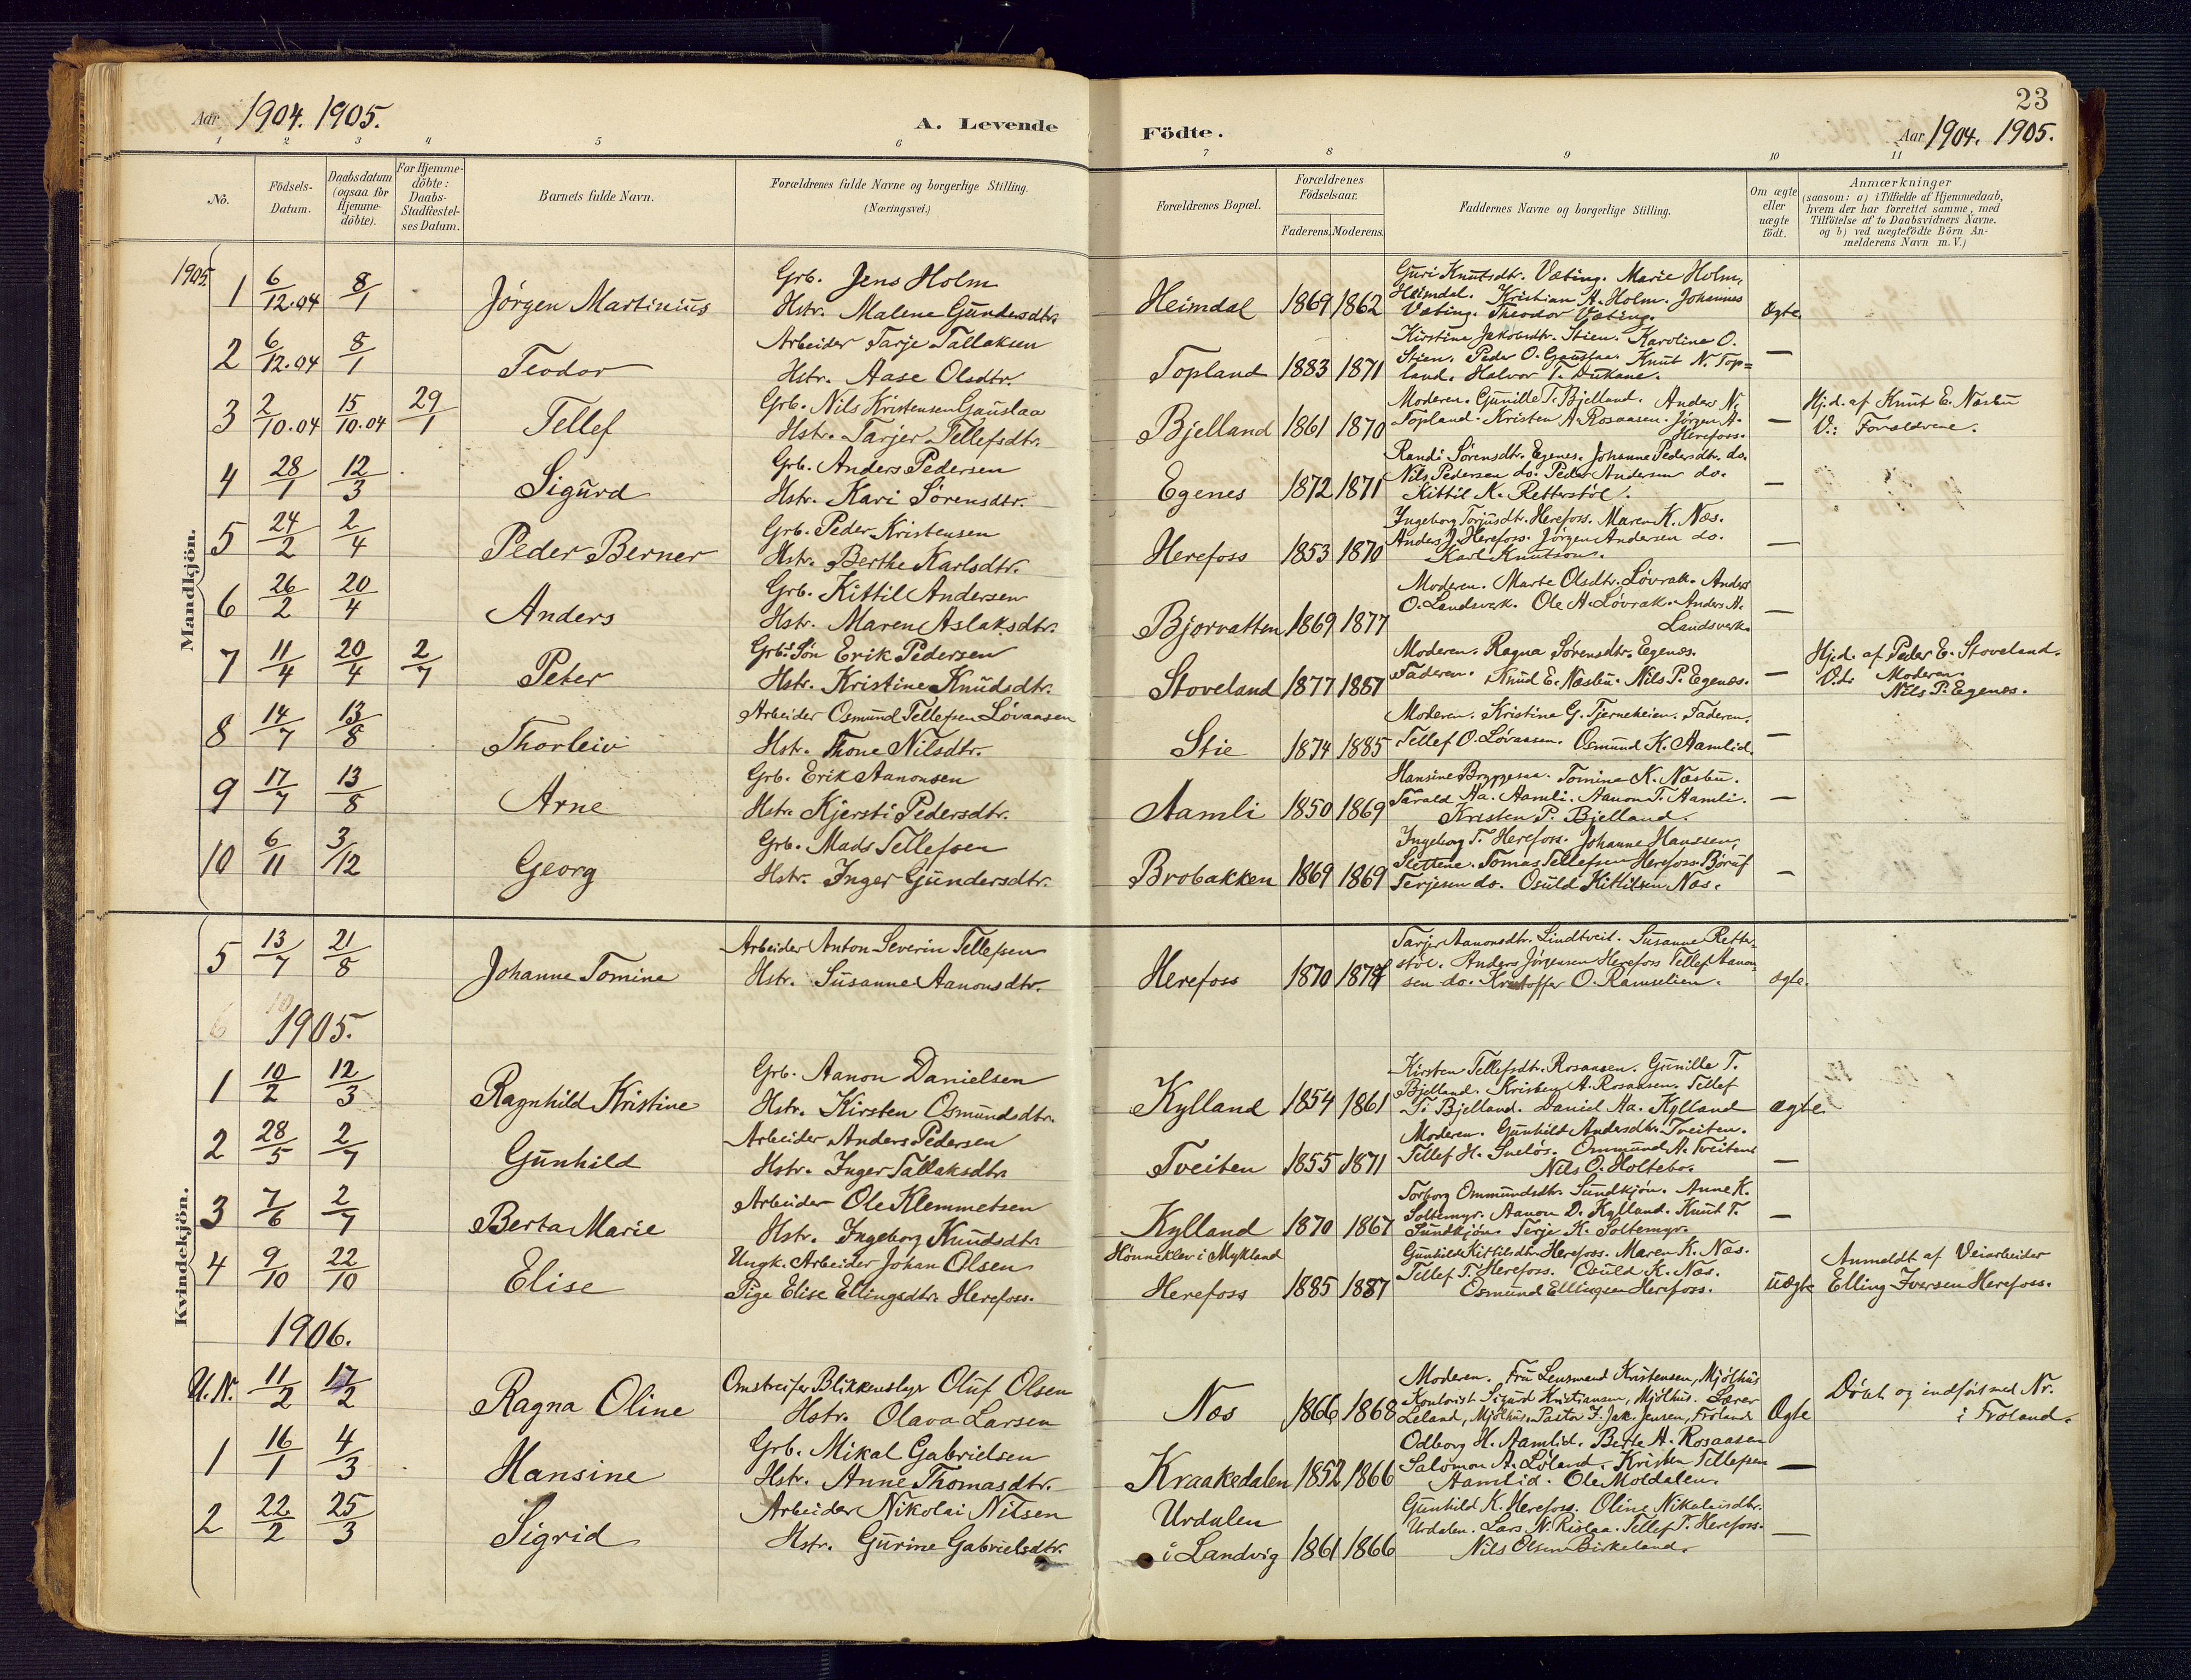 23
Aar 1904. 1905.
A. Levende
Födte.
Aar 1904. 1905.
1 2 3 4 5 6 7 8 9 10 11
No.
Födsels-Datum.
Daabsdatum (ogsaa for Hjemme-döbte).
For Hjemme-döbte: Daabs-Stadfæstel-ses Datum.
Barnets fulde Navn.
Forældrenes fulde Navne og borgerlige Stilling.
(Næringsvei.)
Forældrenes Bopæl.
Forældrenes Födselsaar.
Faderens. Moderens.
Faddernes Navne og borgerlige Stilling.
Om ægte eller uægte födt.
Anmærkninger
(saasom: a) i Tilfælde af Hjemmedaab,
hvem der har forrettet samme, med
Tilföielse af to Daabsvidners Navne.
og b) ved uægtefödte Börn An-
melderens Navn m. V.)
Mandkjön.
1905.
1 6/12.04 8/1 Jörgen Martinius
Grb. Jens Holm
Hstr. Malene Gundersdtr.
Heimdal 1869 1862
Guri Knutsdtr. Væting. Marie Holm,
Heimdal. Kristian A. Holm. Johannes
Væting. Theodor Væting.
Ægte.
2 6/12.04 8/1 Teodor
Arbeider Tarje Tallaksen
Hstr. Aase Olsdtr.
Topland 1883 1871
Kirstine Jakobsdtr. Stien. Karoline O.
Stien. Peder O. Gauslaa. Knut N. Top=
land. Halvor T. Dukane.
—
3 2/10.04 15/10.04 29/1 Tellef
Grb. Nils Kristensen Gauslaa
Hstr. Tarjer Tellefsdtr.
Bjelland 1861 1870
Moderen. Gunille T. Bjelland. Anders N.
Topland. Kristen A. Rosaasen. Jörgen A.
Herefoss.
—
Hj.d. af Knut E. Næsbu
V.: Forældrene.
4 28/1 12/3 Sigurd
Grb. Anders Pedersen
Hstr. Kari Sörensdtr.
Egenes 1872 1871
Randi Sörensdtr. Egenes. Johanne Pedersdtr. do.
Nils Pedersen do. Peder Andersen do.
Kittil K. Retterstöl.
—
5 24/2 2/4 Peder Berner
Grb. Peder Kristensen
Hstr. Berthe Karlsdtr.
Herefoss 1853 1870
Ingeborg Torjusdtr. Herefoss. Maren K. Næs.
Anders J. Herefoss. Jörgen Andersen do.
Karl Knutson.
—
6 26/2 20/4 Anders
Grb. Kittil Andersen
Hstr. Maren Aslaksdtr.
Bjorvatten 1869 1877
Moderen. Marte Olsdtr. Lövrak. Anders
O. Landsverk. Ole A. Lövrak. Anders A.
Landsverk.
—
7 11/4 20/4 2/7 Peter
Grbs. Sön Erik Pedersen
Hstr. Kristine Knudsdtr.
Stoveland 1877 1887
Moderen. Ragna Sörensdtr. Egenes.
Faderen. Knud E. Næsbu. Nils P. Egenes.
—
Hj.d. af Peder E. Stoveland.
V.: Moderen.
Nils P. Egenes.
8 14/7 13/8 Thorleiv
Arbeider Osmund Tellefsen Lövaasen
Hstr. Thone Nilsdtr.
Stie 1874 1885
Moderen. Kristine G. Tjerneheien. Faderen.
Tellef O. Lövaasen. Osmund K. Aamlid.
—
9 17/7 13/8 Arne
Grb. Erik Aanonsen
Hstr. Kjersti Pedersdtr.
Aamli 1850 1869
Hansine Bryggesaa. Tomine K. Næsbu.
Tarald Aa. Aamli. Aanon T. Aamli.
Kristen P. Bjelland.
—
10 6/11 3/12 Georg
Grb. Mads Tellefsen
Hstr. Inger Gundersdtr.
Brobakken 1869 1869
Ingeborg T. Herefoss. Johanne Hanssen,
Slettene. Tomas Tellefsen Herefoss.
Terjesen do. Osuld Kittilsen Næs.
—
Kvindekjön.
5 13/7 21/8 Johanne Tomine
Arbeider Anton Severin Tellefsen
Hstr. Susanne Aanonsdtr.
Herefoss 1870 1874
Tarjer Aanonsdtr. Lindtveit. Susanne Retter-
stöl. Anders Jörgensen Herefoss Tellef Aanon-
sen do. Kristoffer O. Ramselien.
ægte.
6
1905.
1 10/2 12/3 Ragnhild Kristine
Grb. Aanon Danielsen
Hstr. Kirsten Osmundsdtr.
Kylland 1854 1861
Kirsten Tellefsdtr. Rosaasen. Gunille T.
Bjelland. Kristen A. Rosaasen. Tellef
T. Bjelland. Daniel Aa. Kylland
ægte.
2 28/5 2/7 Gunhild
Arbeider Anders Pedersen
Hstr. Inger Tallaksdtr.
Tveiten 1855 1871
Moderen. Gunhild Andersdtr. Tveiten.
Tellef H. Snelös. Ommund A. Tveiten.
Nils O. Holtebo.
—
3 7/6 2/7 Berta Marie
Arbeider Ole Klemmetsen
Hstr. Ingeborg Knudsdtr.
Kylland 1870 1867
Torborg Ommundsdtr. Sundkjön. Anne K.
Soltemyr. Aanon D. Kylland. Knut T.
Sundkjön. Terje K. Soltemyr.
—
4 9/10 22/10 Elise
Ungk. Arbeider Johan Olsen
Pige Elise Ellingsdtr. Herefoss.
Hönneklev i Mykland
Herefoss 1885 1887
Gunhild Kittilsdtr. Herefoss. Maren K. Næs.
Tellef T. Herefoss. Osuld K. Næs.
Osmund Ellingsen Herefoss.
uægte
Anmeldt af Veiarbeider
Elling Iversen Herefoss.
1906.
U.N. 11/2 17/2 Ragna Oline
Omstreifer Blikkenslgr Oluf Olsen
Hstr. Olava Larsen
Næs 1866 1868
Moderen. Fru Lensmand Kristensen, Mjölhus
Kontorist Sigurd Kristiansen, Mjölhus. Lærer
Leland, Mjölhus. Pastor J. Jak. Jensen, Froland
Ægte
Döbt og indfört med Nr.
i Froland.
1 16/1 4/3 Hansine
Grb. Mikal Gabrielsen
Hstr. Anne Thomasdtr.
Kraakedalen 1852 1866
Odborg H. Aamlid. Berte A. Rosaasen
Salomon A. Löland. Kristen Tellefsen
Aamlid. Ole Moldalen.
—
2 22/2 25/3 Sigrid
Arbeider Nikolai Nilsen
Hstr. Gurine Gabrielsdtr.
Urdalen
i Landvig 1861 1866
Gunhild K. Herefoss. Oline Nikolaisdtr.
Urdalen. Lars N. Rislaa. Tellef T. Herefoss.
Nils Olsen Birkeland.
—